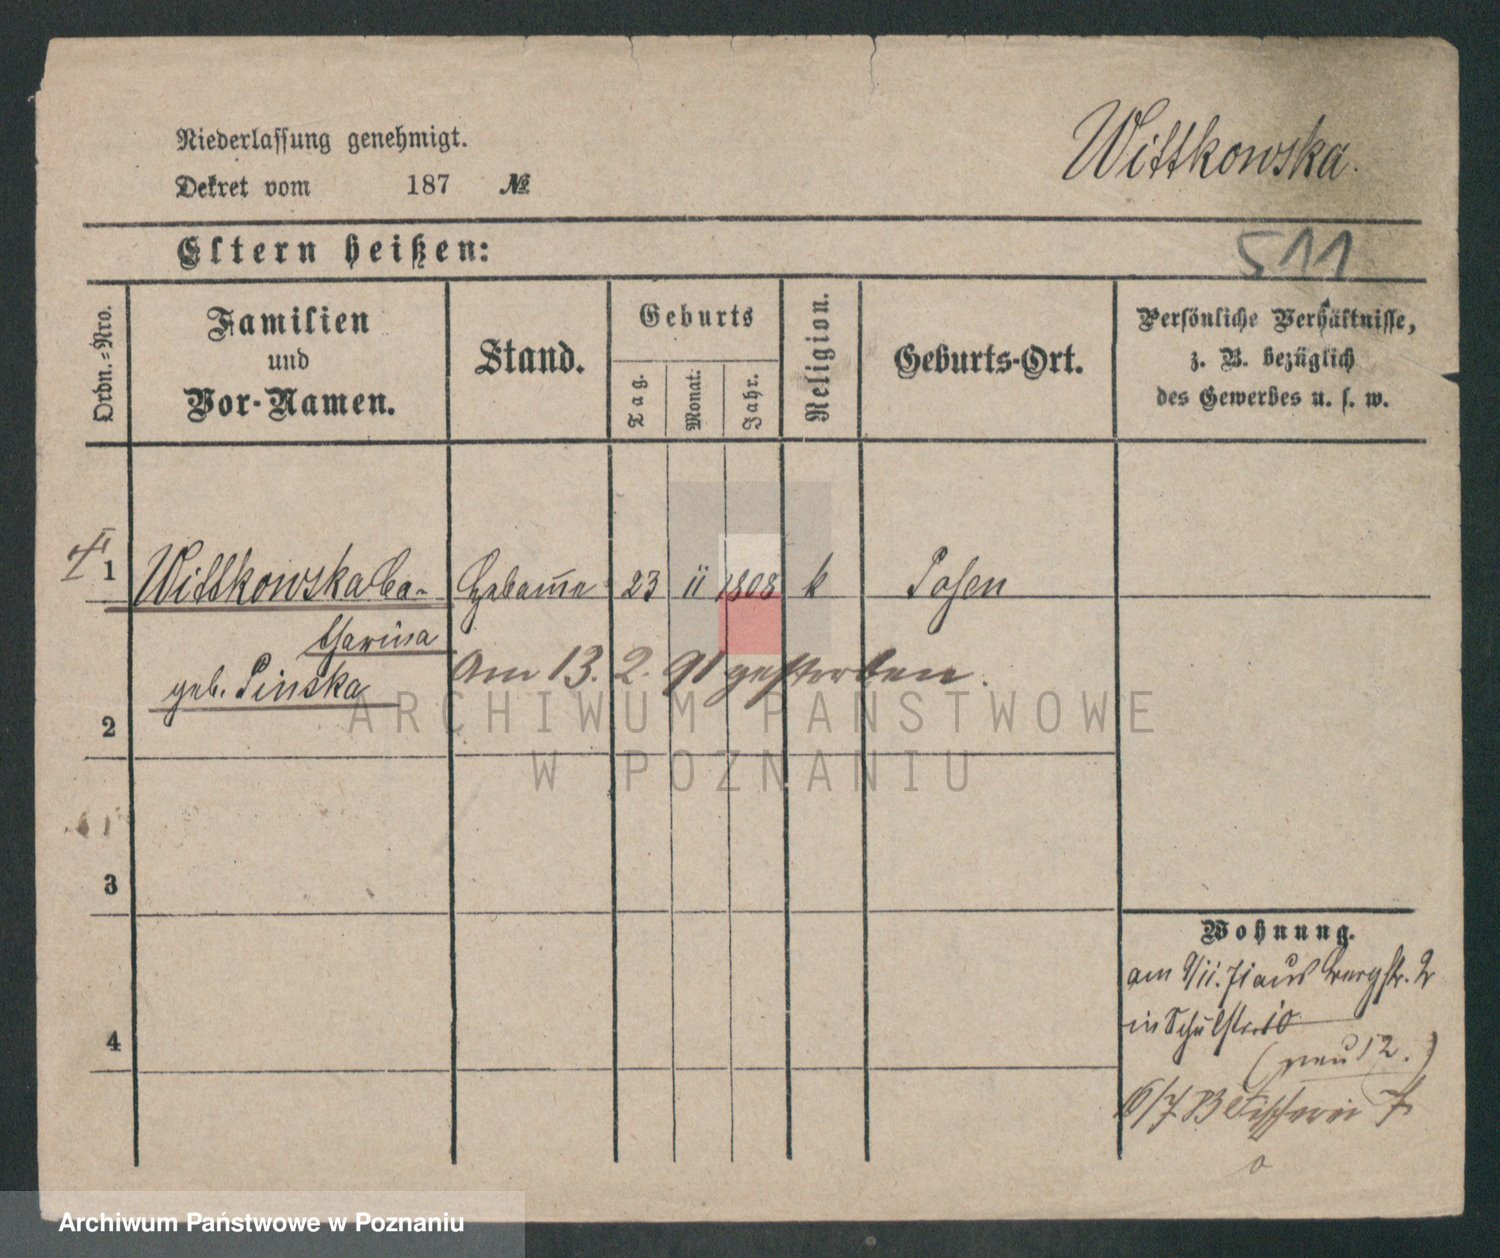 Niederlassung genehmigt.
Dekret vom 187 №
Wittkowska.
Eltern heißen:
511
Ordn.-Nro.
Familien
und
Vor-Namen.
Stand.
Geburts
Tag.
Monat.
Jahr.
Religion.
Geburts-Ort.
Persönliche Verhältnisse,
z. B. bezüglich
des Gewerbes u. s. w.
1 Wittkowska Ca- Hebamme 23 11 1808 k Posen
tharina
geb. Pinska
Am 13. 2. 91 gestorben.
2
3
4
Wohnung.
am 9/11. 71 aus Bergstr. 2
in Schulstr. 10
(neu 12.)
Fischerei 7
ARCHIWUM PAŃSTWOWE
W POZNANIU
Archiwum Państwowe w Poznaniu